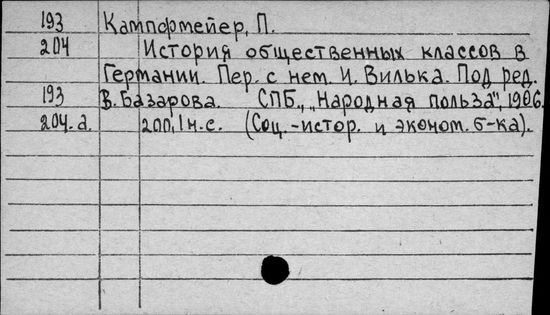 193 Кампфмейер, П.
204 История общественных классов в
Германии. Пер. с нем. И. Вилька. Под ред.
193 В. Базарова. СПБ., „Народная польза", 1906.
204.а. 200, 1 н.с. (Соц.-истор. и эконом. б-ка).